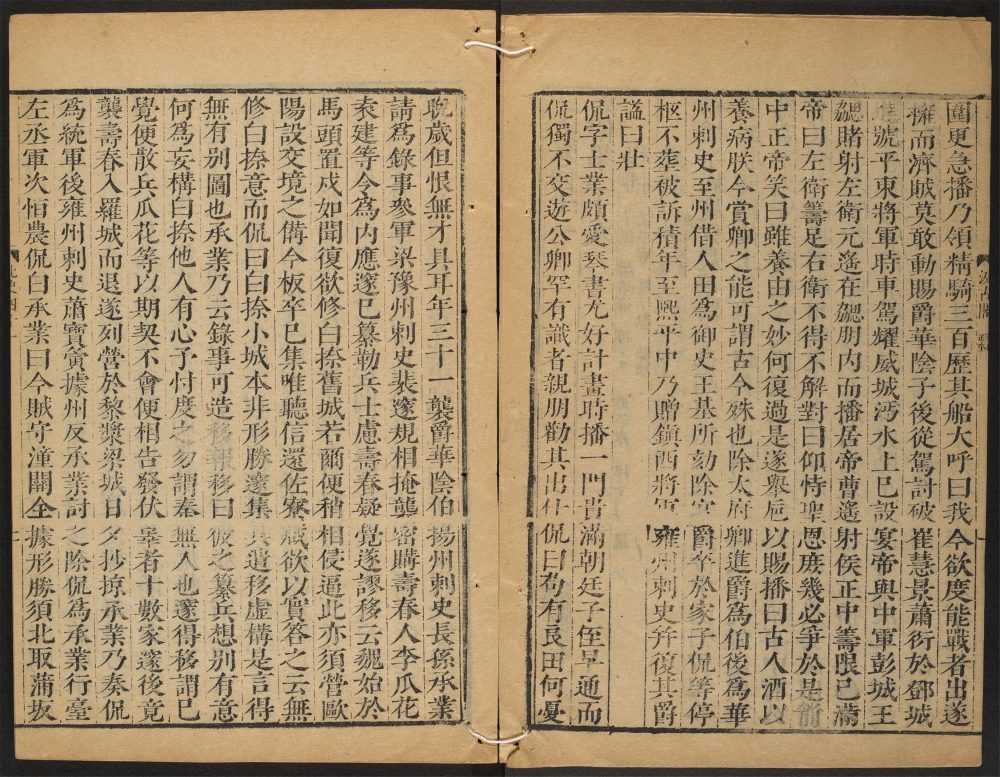 圍更急播乃領精騎三百歷其船大呼曰我今欲度能戰者出遂
擁而濟賊莫敢動賜爵華陰子後從駕討破崔慧景蕭衍於鄧城
進號平東將軍時車駕耀威城沔水上巳設宴帝與中軍彭城王
勰賭射左衛元遙在勰朋內而播居帝曹遙射侯正中籌限已滿
帝曰左衛籌足右衛不得不解對曰仰恃聖恩庶幾必爭於是箭
中正帝笑曰雖養由之妙何復過是遂舉卮以賜播曰古人酒以
養病朕今賞卿之能可謂古今殊也除太府卿進爵爲伯後爲華
州刺史至州借人田爲御史王基所劾除官爵卒於家子侃等停
柩不葬被訴積年至熙平中乃贈鎮西將軍雍州刺史幷復其爵
謚曰壯
侃字士業頗愛琴書尤好計畫時播一門貴滿朝廷子侄早通而
侃獨不交遊公卿罕有識者親朋勸其出仕侃曰苟有良田何憂
晚歲但恨無才具耳年三十一襲爵華陰伯揚州刺史長孫承業
請爲錄事參軍梁豫州刺史裴邃規相掩襲密購壽春人李瓜花
袁建等令爲內應邃已纂勒兵士慮壽春疑覺遂謬移云魏始於
馬頭置戍如聞復欲修白捺舊城若爾便稍相侵逼此亦須營歐
陽設交境之備今板卒已集唯聽信還佐寮咸欲以實答之云無
修白捺意而侃曰白捺小城本非形勝邃集兵遣移虛構是言得
無有别圖也承業乃云錄事可造移報移曰彼之纂兵想别有意
何爲妄構白捺他人有心予忖度之勿謂秦無人也邃得移謂已
覺便散兵瓜花等以期契不會便相告發伏辜者十數家邃後竟
襲壽春入羅城而退遂列營於黎漿梁城日夕抄掠承業乃奏侃
爲統軍後雍州刺史蕭寶寅據州反承業討之除侃爲承業行臺
左丞軍次恒農侃白承業曰今賊守潼關全據形勝須北取蒲坂